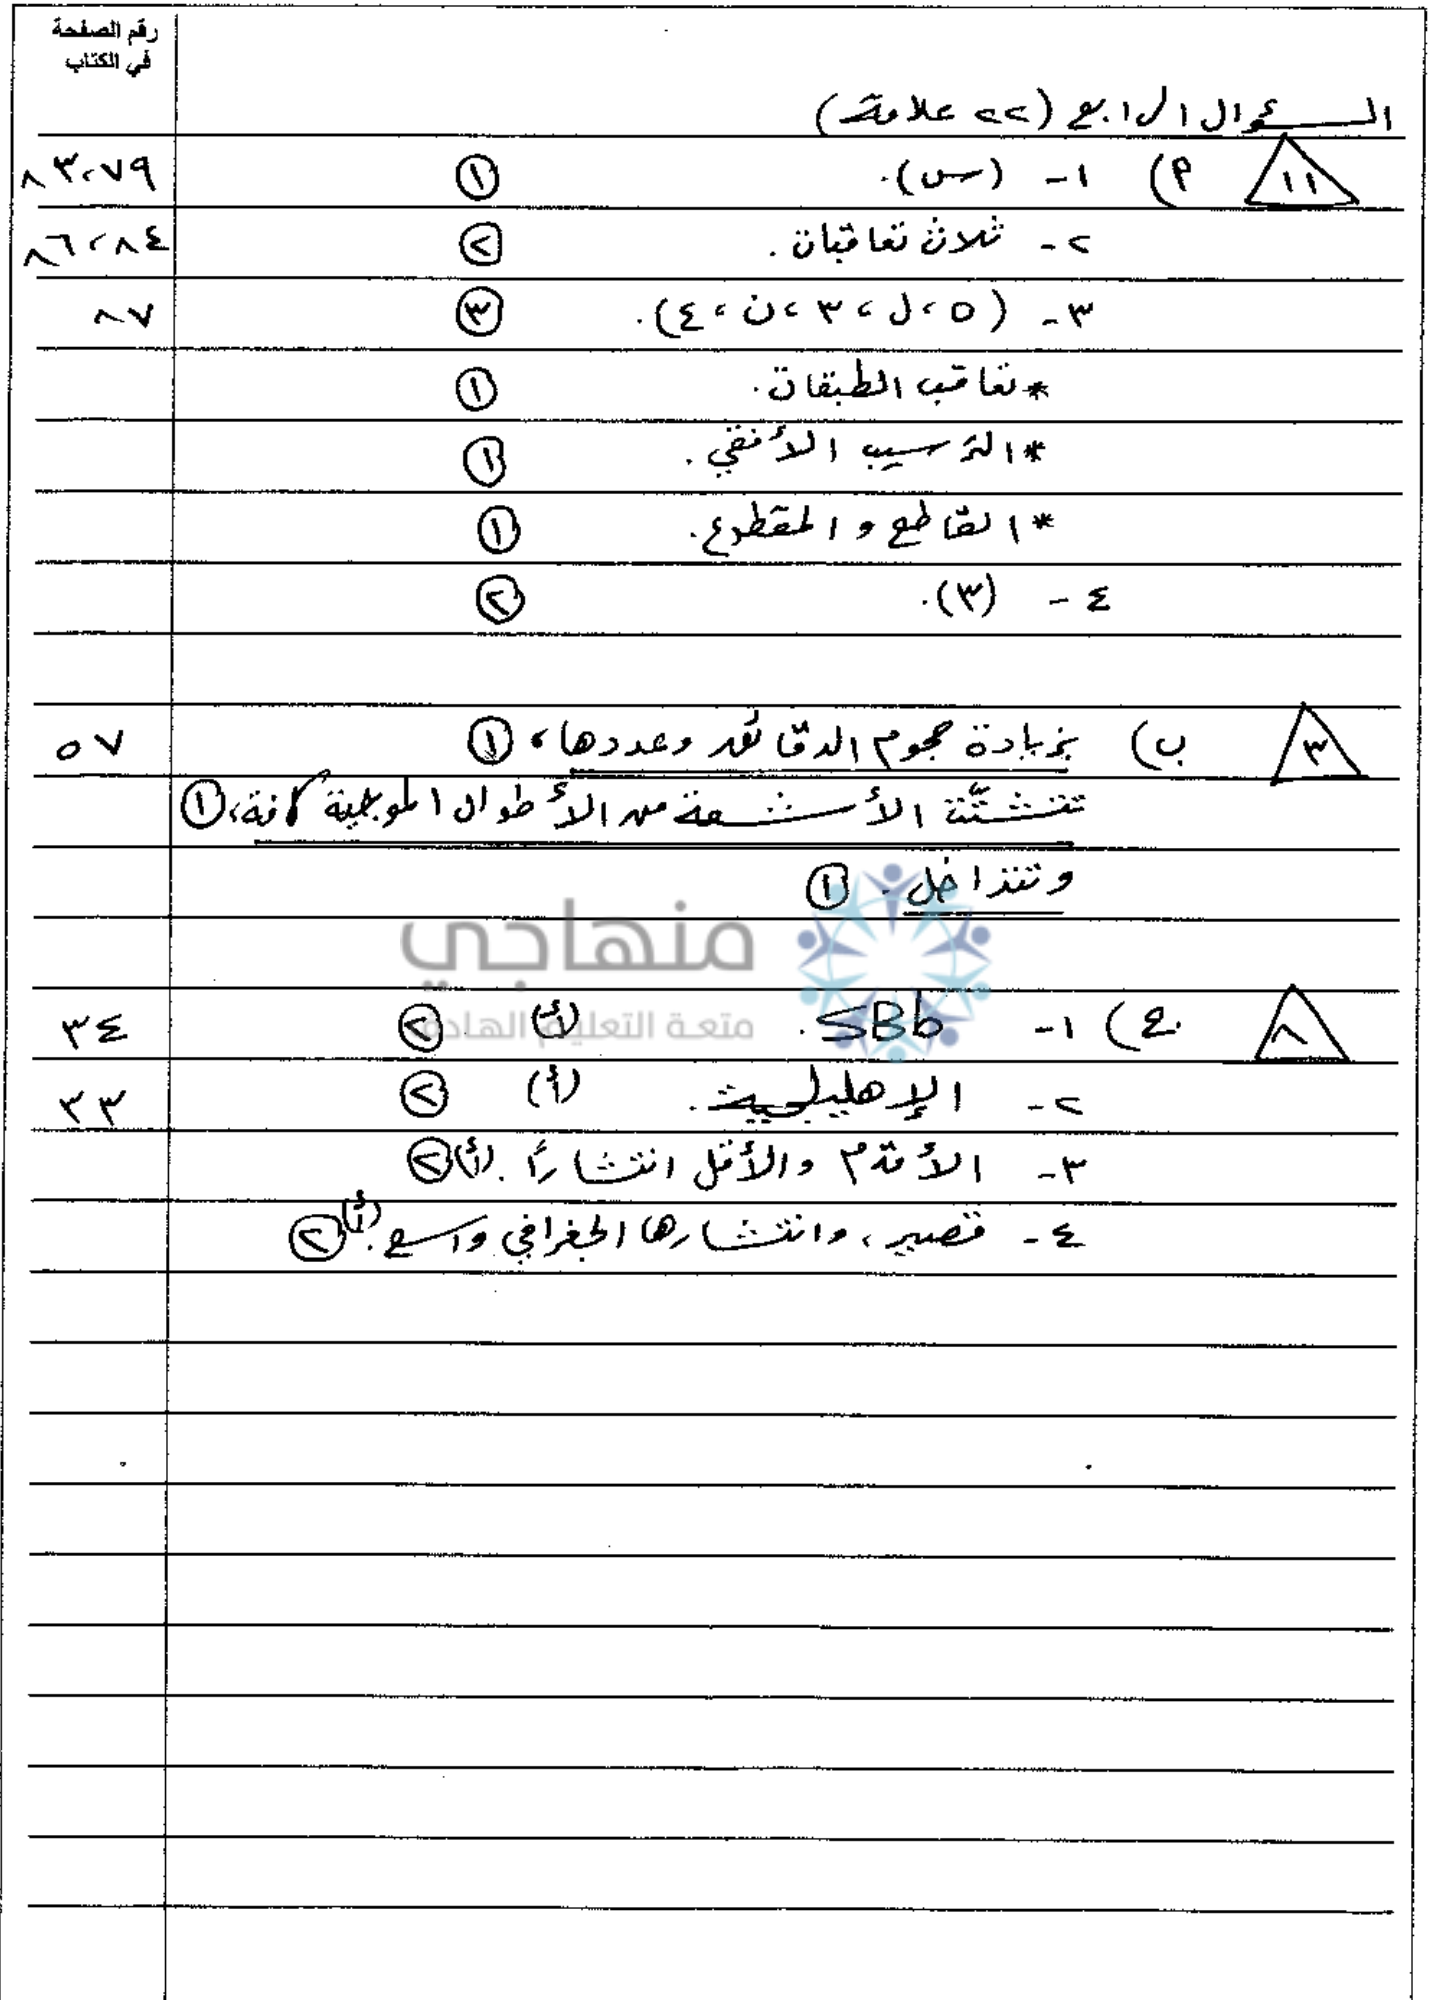 رقم الصفحة
في الكتاب
السؤال الرابع (٢٢ علامة)
١١ أ) ١- (س). ① ٧٩، ٨٣
٢- ثلاث تعاقبات. ② ٨٤، ٨٦
٣- (٥، ل، ٣، ن، ٤). ③ ٨٧
* تعاقب الطبقات. ①
* الترسيب الأفقي. ①
* القاطع والمقطوع. ①
٤- (٣). ②
٣ ب) بزيادة حجوم الدقائق وعددها، ① ٥٧
تتشتّت الأشعة من الأطوال الموجية كافة، ①
وتتداخل. ①
منهاجي
متعة التعليم الهادف
٨ ج) ١- SBb. (أ) ② ٣٤
٢- الإهليلجية. (أ) ② ٣٣
٣- الأقدم والأقل انتشارًا. (أ) ②
٤- قصير، وانتشارها الجغرافي واسع. (أ) ②